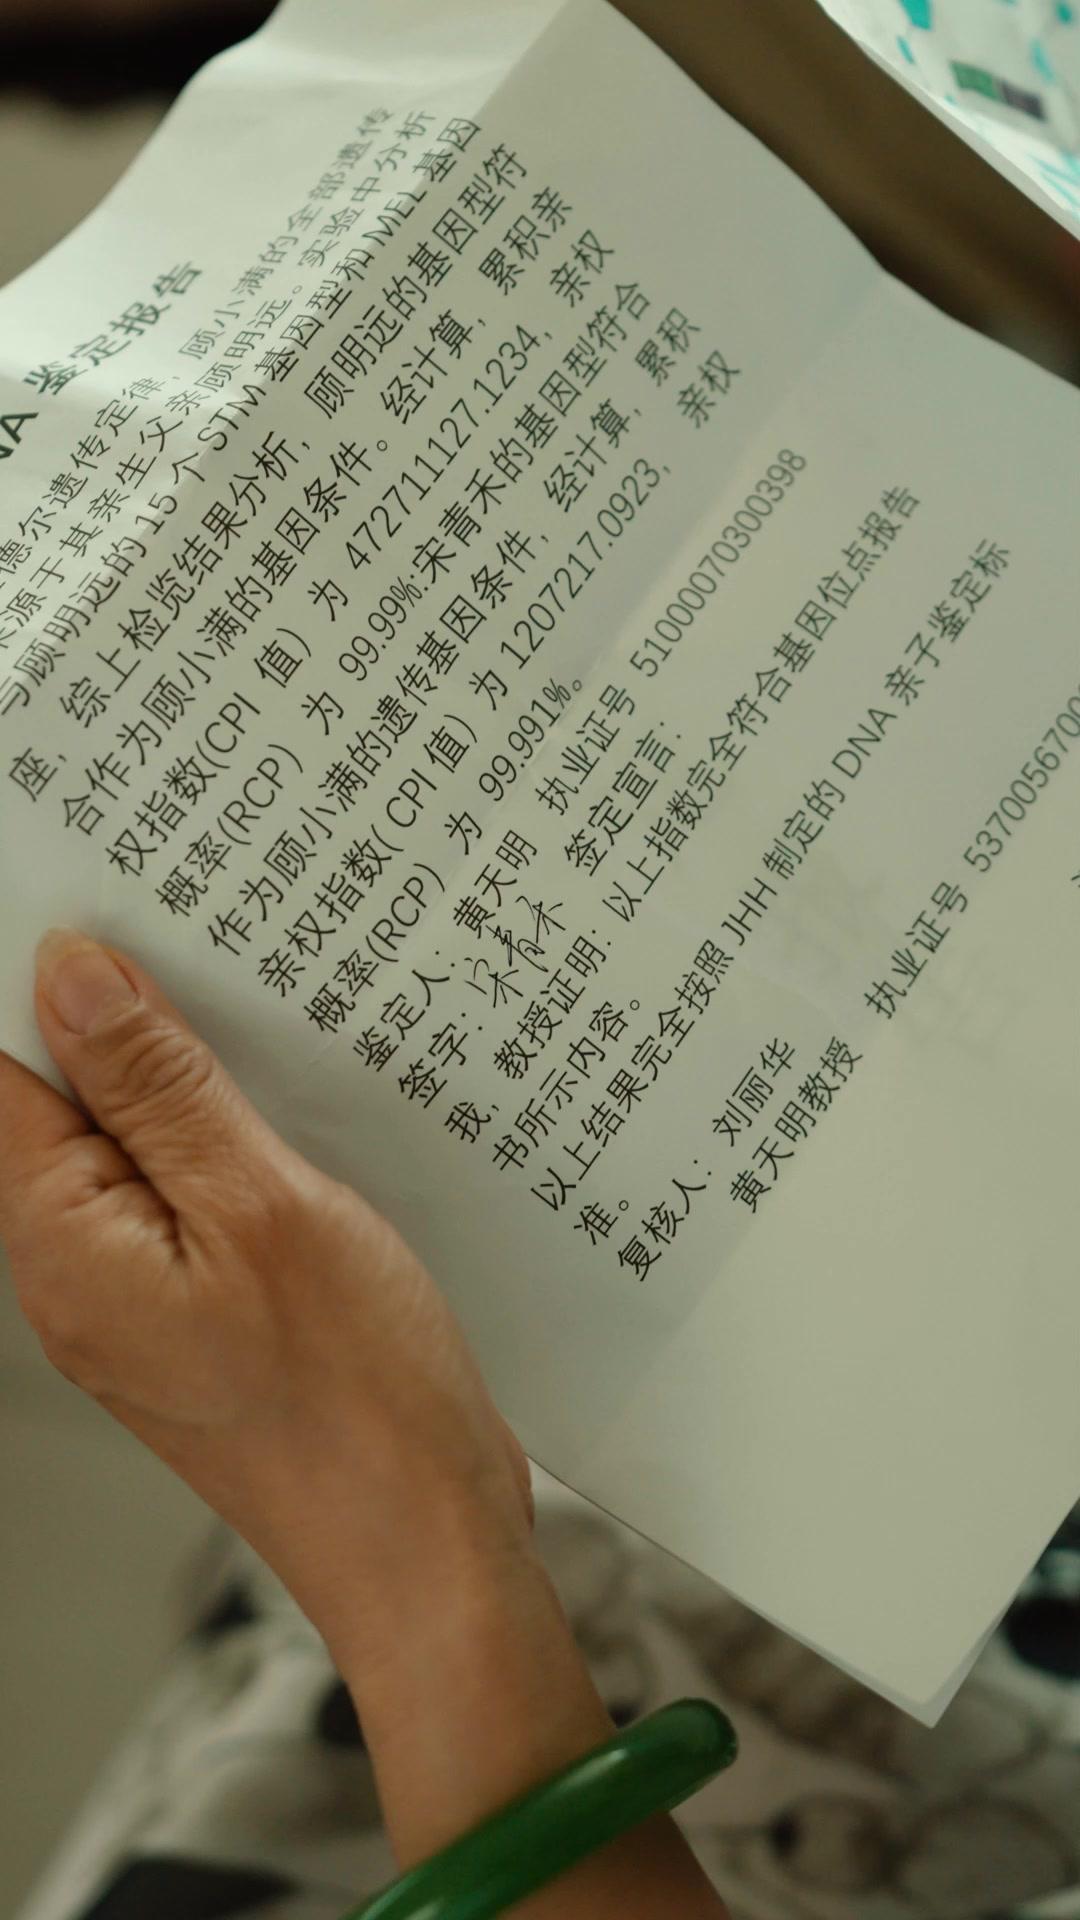 NA 鉴定报告
德尔遗传定律，顾小满的全部遗传
来源于其亲生父亲顾明远。实验中分析
与顾明远的 15 个 STM 基因型和 MEL 基因
座，综上检览结果分析，顾明远的基因型符
合作为顾小满的基因条件。经计算，累积亲
权指数(CPI 值) 为 472711127.1234，亲权
概率(RCP) 为 99.99%:宋青禾的基因型符合
作为顾小满的遗传基因条件，经计算，累积
亲权指数( CPI 值) 为 1207217.0923，亲权
概率(RCP) 为 99.991%。
鉴定人：黄天明 执业证号 510000703００398
签字：宋青禾 签定宣言：
我，教授证明：以上指数完全符合基因位点报告
书所示内容。
以上结果完全按照 JHH 制定的 DNA 亲子鉴定标
准。
复核人：刘丽华
黄天明教授 执业证号 537005670